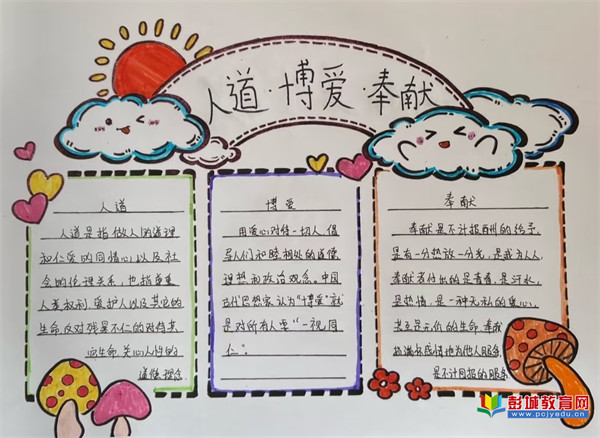 人道·博爱·奉献
人道
人道是指做人的道理
和仁爱的同情心以及社
会的伦理关系,也指尊重
人类权利,爱护人以及其它的
生命,反对残暴不仁的对待其
它生命,关心人性的
道德理念
博爱
用爱心对待一切人,倡
导人们和睦相处的道德
理想和政治观念。中国
古代思想家认为"博爱"就
是对所有人要"一视同
仁"。
奉献
奉献是不计报酬的给予,
是有一分热放一分光,是我为人人,
奉献者付出的是青春,是汗水,
是热情,是一种无私的爱心,
甚至是无价的生命,奉献
感情也为他人服务,
是不计回报的服务
彭城教育网
www.pcjyedu.cn